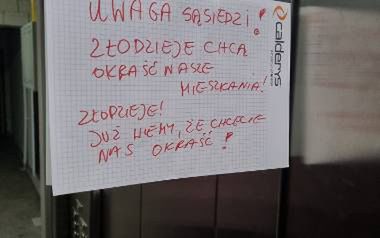 UWAGA SĄSIEDZI!
ZŁODZIEJE CHCĄ
OKRAŚĆ NASZE
MIESZKANIA!
ZŁODZIEJE!
JUŻ WIEMY, ŻE CHCECIE
NAS OKRAŚĆ!
calderys